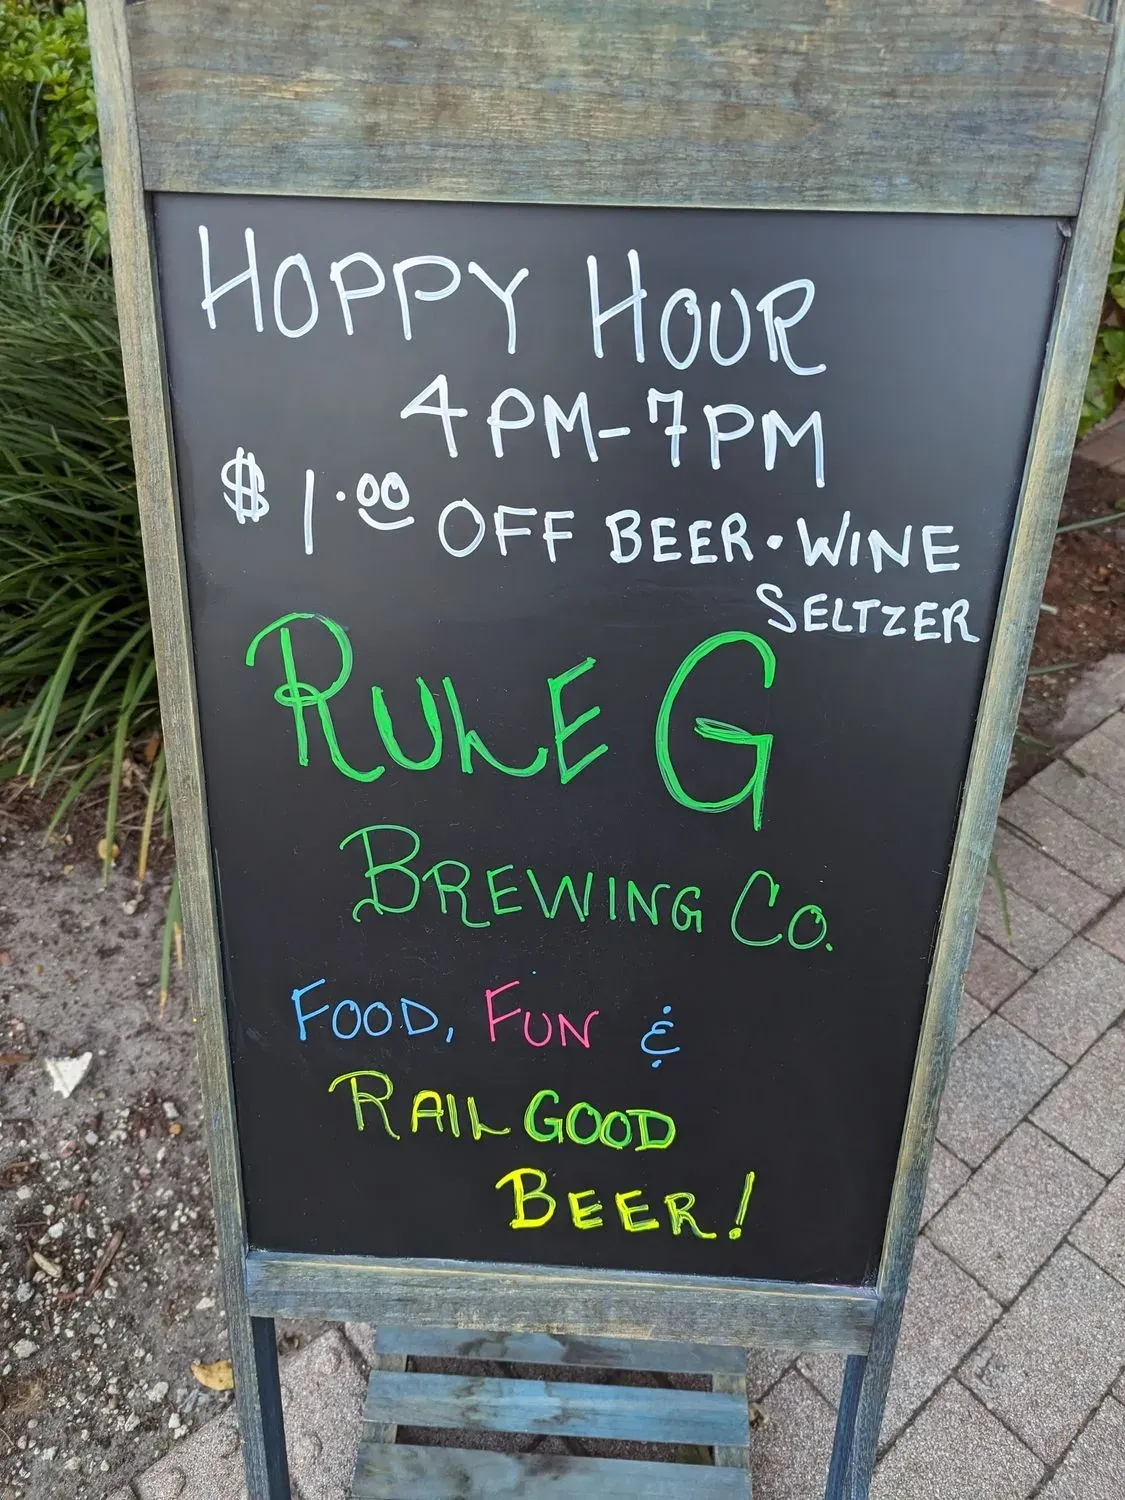 HOPPY HOUR
4PM-7PM
$1.00 OFF BEER • WINE
SELTZER
RULE G
BREWING CO.
FOOD, FUN &
RAIL GOOD
BEER!